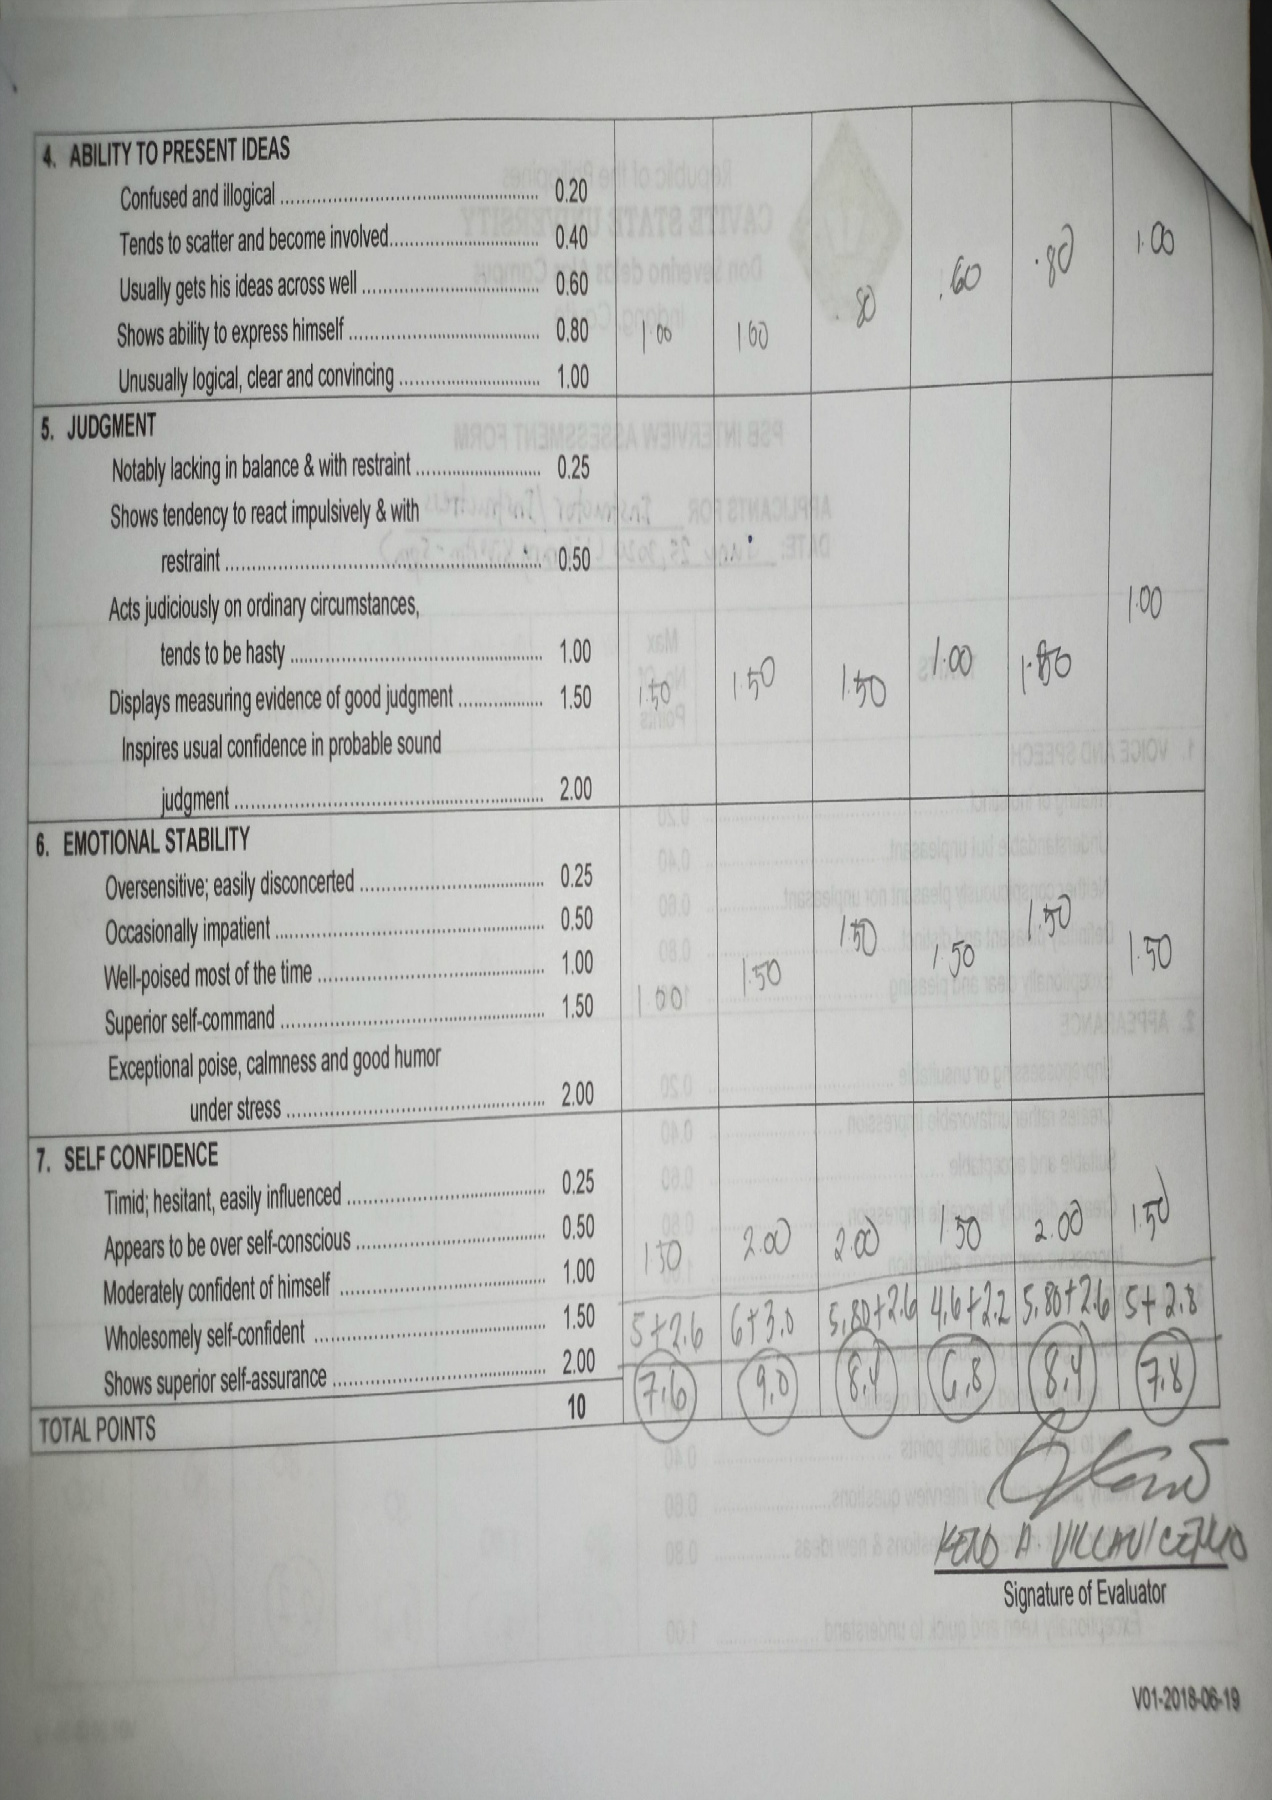 4. ABILITY TO PRESENT IDEAS
Confused and illogical ........ 0.20
Tends to scatter and become involved........ 0.40
Usually gets his ideas across well ........ 0.60
Shows ability to express himself ........ 0.80
Unusually logical, clear and convincing ........ 1.00
1.00 1.00 .80 .60 .80 1.00
5. JUDGMENT
Notably lacking in balance & with restraint ........ 0.25
Shows tendency to react impulsively & with
restraint ........ 0.50
Acts judiciously on ordinary circumstances,
tends to be hasty ........ 1.00
Displays measuring evidence of good judgment ........ 1.50
Inspires usual confidence in probable sound
judgment ........ 2.00
1.50 1.50 1.50 1.00 1.50 1.00
6. EMOTIONAL STABILITY
Oversensitive; easily disconcerted ........ 0.25
Occasionally impatient ........ 0.50
Well-poised most of the time ........ 1.00
Superior self-command ........ 1.50
Exceptional poise, calmness and good humor
under stress ........ 2.00
1.00 1.50 1.50 1.50 1.50 1.50
7. SELF CONFIDENCE
Timid; hesitant, easily influenced ........ 0.25
Appears to be over self-conscious ........ 0.50
Moderately confident of himself ........ 1.00
Wholesomely self-confident ........ 1.50
Shows superior self-assurance ........ 2.00
1.50 2.00 2.00 1.50 2.00 1.50
5+2.6 6+3.0 5.80+2.6 4.6+2.2 5.80+2.6 5+2.8
TOTAL POINTS 10 7.6 9.0 8.4 6.8 8.4 7.8
A. VILLAVICENCIO
Signature of Evaluator
V01-2018-06-19